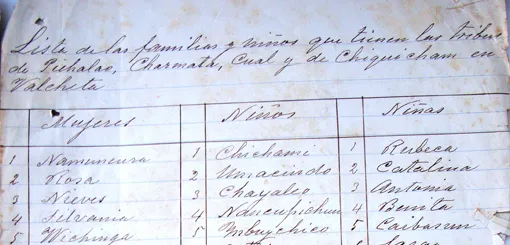 Lista de las familias y niños que tienen las tribus
de Pichalao, Charmata, Cual y de Chiquicham en
Valcheta
Mujeres Niños Niñas
1 Namuncura 1 Chichami 1 Rebeca
2 Rosa 2 Umacindo 2 Catalina
3 Nieves 3 Chayalco 3 Antoma
4 Silvania 4 Nancupichun 4 Benita
5 Wichinga 5 Inbuychico 5 Caibasun